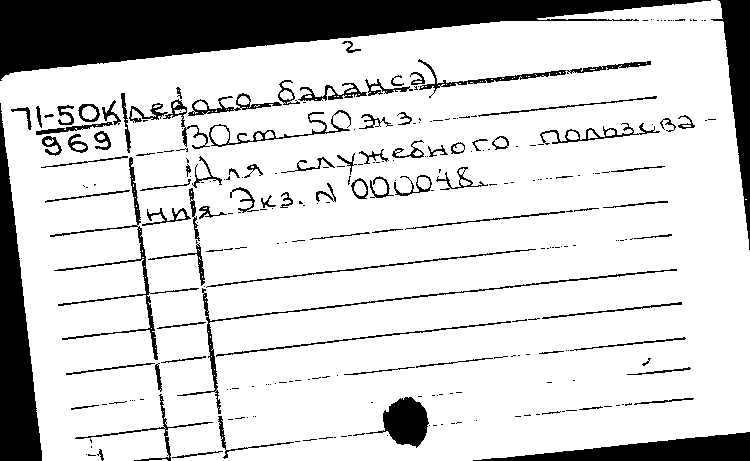 2
71-50К левого баланса).
969 30 ст. 50 экз.
Для служебного пользова-
ния. Экз. N 000048.